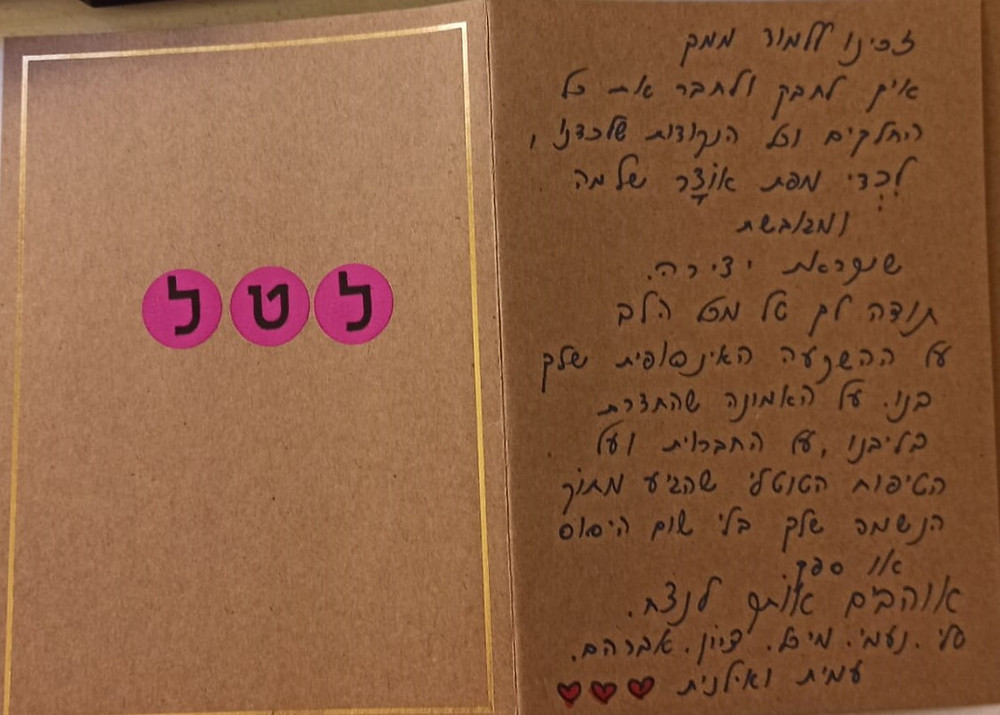 לטל
זכינו ללמוד ממך
איך לחבק ולחבר את כל
החלקים וכל הנקודות שלכדנו,
לִכְדֵי מפת אוֹצָר שלמה
ומגובשת
שנקראת יצירה.
תודה לך טל מכל הלב
על ההשקעה האינסופית שלך
בנו. על האמונה שהחדרת
בליבנו, על החברוית ועל
הטיפוח הטוטלי שהגיע מתוך
הנשמה שלך בלי שום היסוס
או ספק.
אוהבים אותך לנצח.
סלי. נעמי. מיכל. ציון. אברהם.
עמית ואילנית